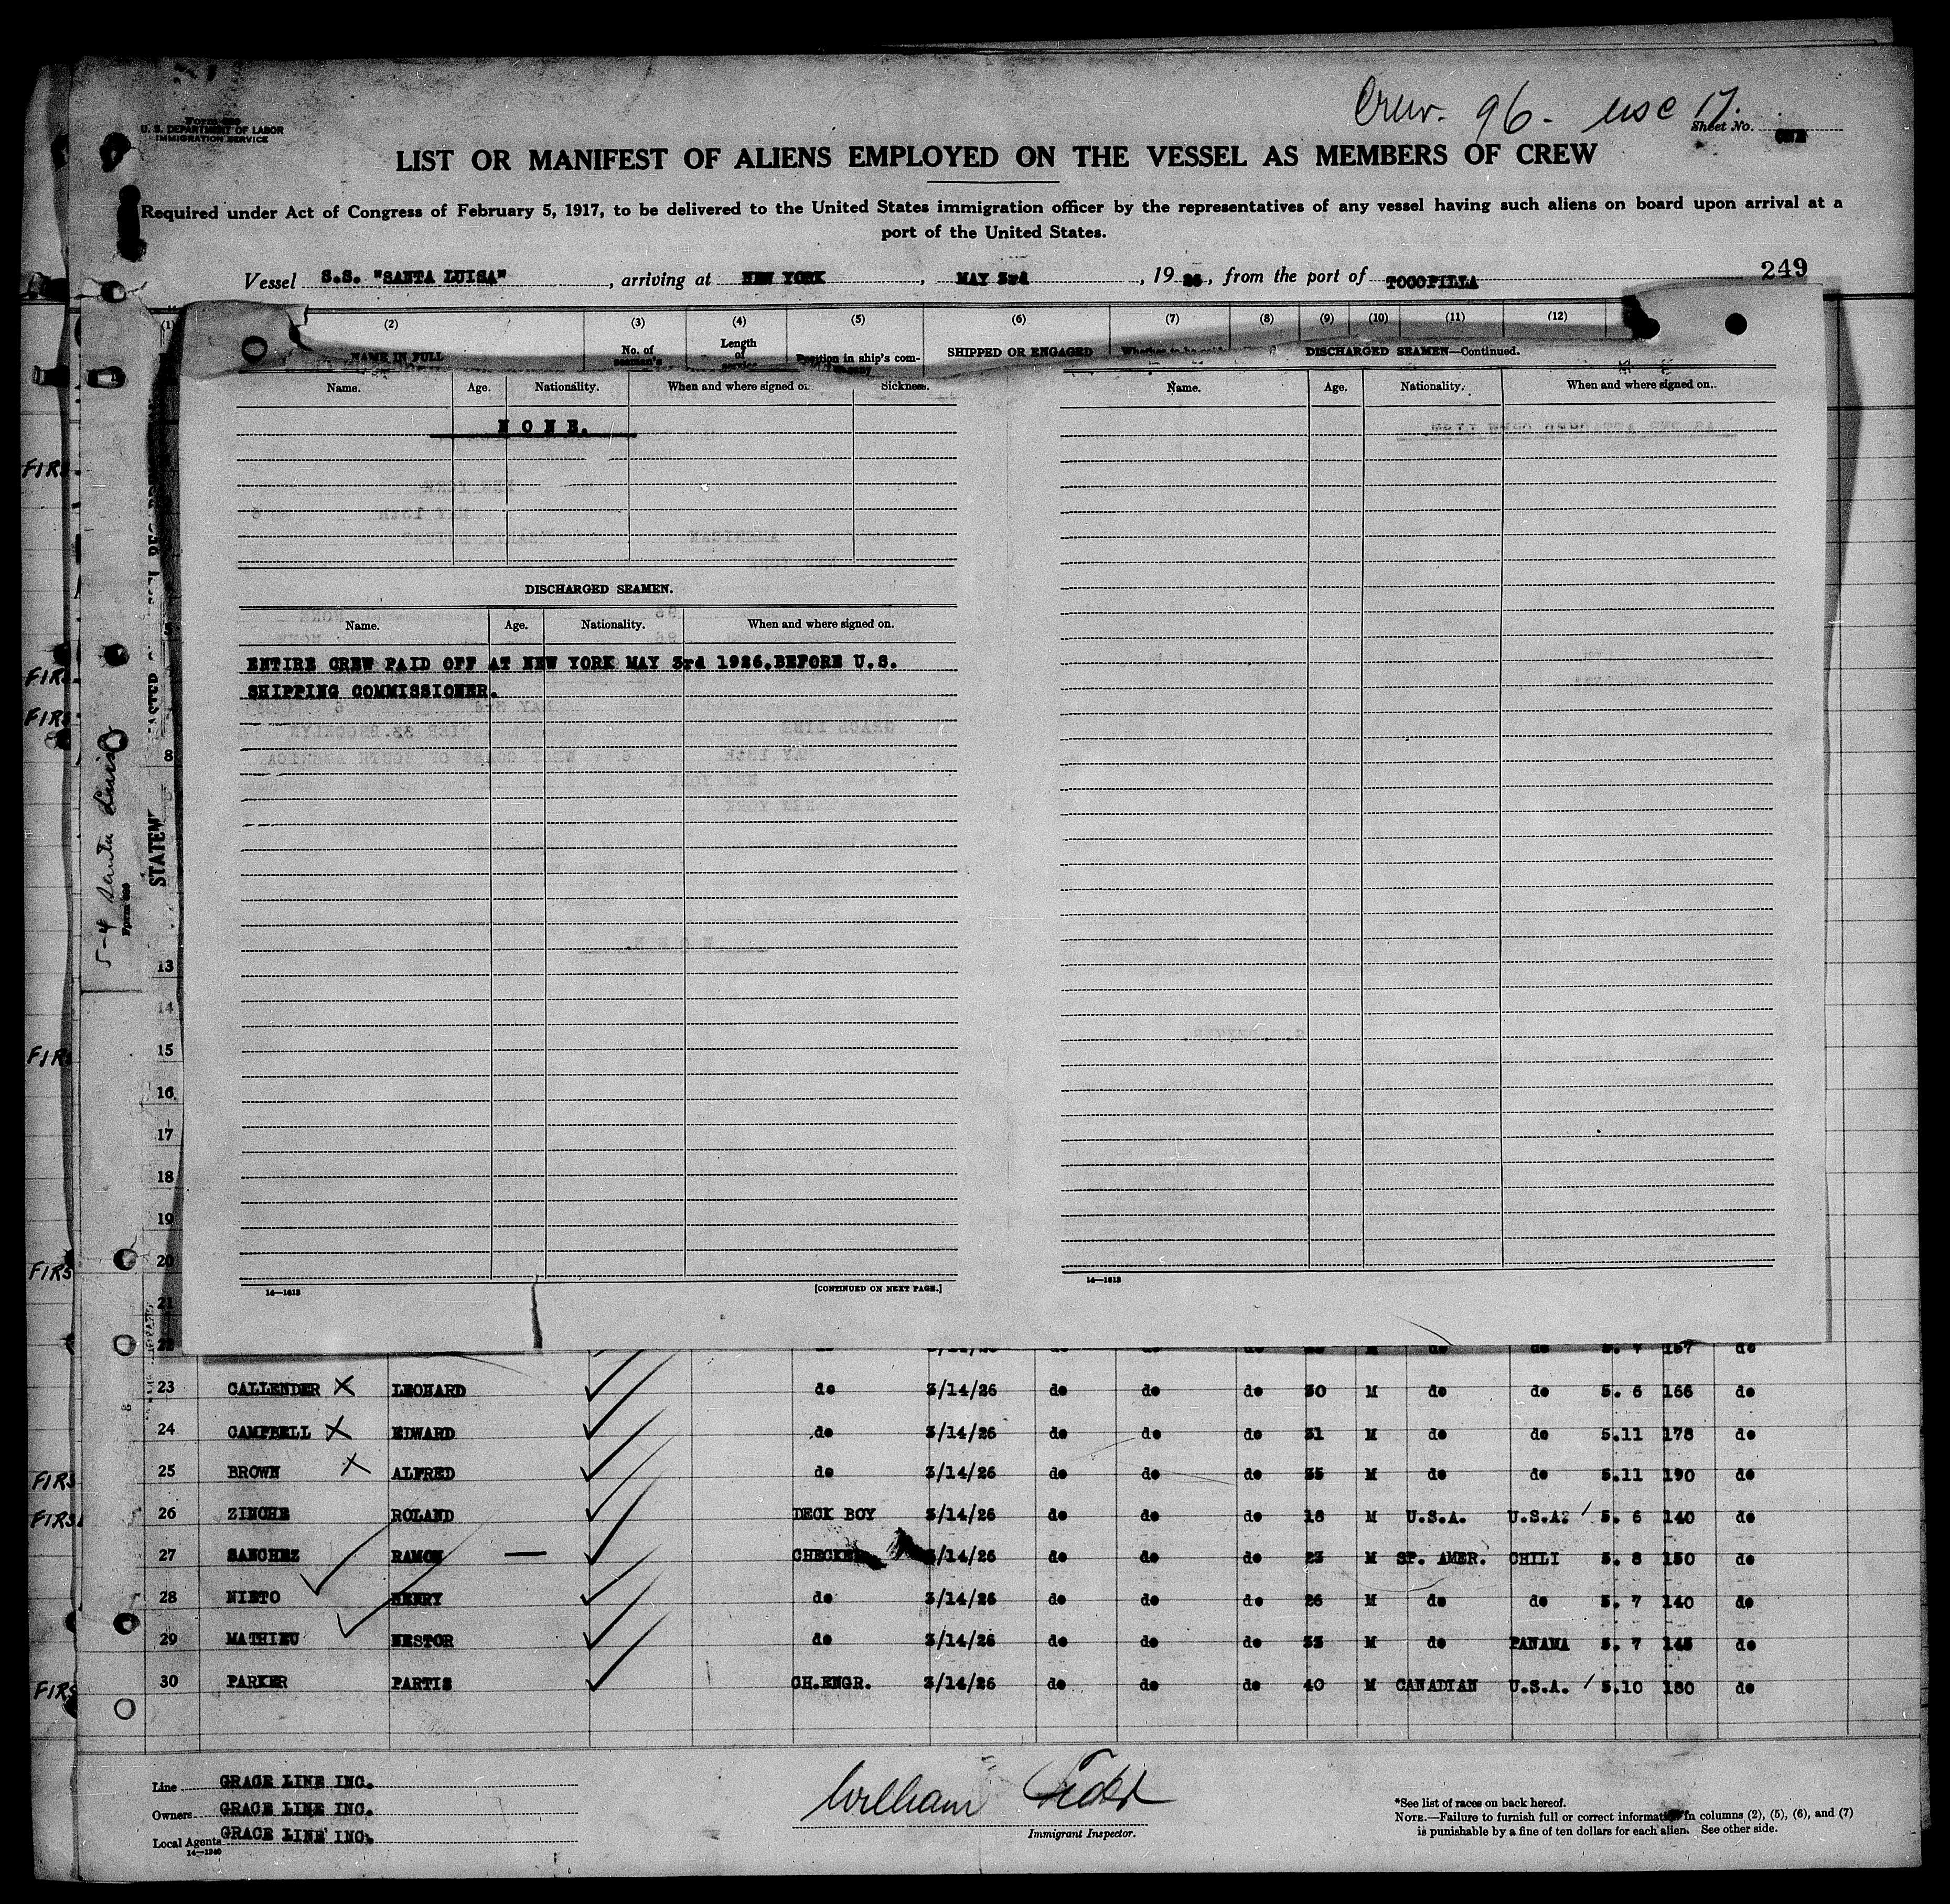 Crew. 96. usc 17.
Form 689
U. S. DEPARTMENT OF LABOR
IMMIGRATION SERVICE
Sheet No. ONE
LIST OR MANIFEST OF ALIENS EMPLOYED ON THE VESSEL AS MEMBERS OF CREW
Required under Act of Congress of February 5, 1917, to be delivered to the United States immigration officer by the representatives of any vessel having such aliens on board upon arrival at a
port of the United States.
249
Vessel S.S. "SANTA LUISA", arriving at NEW YORK, MAY 3rd, 1926, from the port of TOCOPILLA
(1) (2) (3) (4) (5) (6) (7) (8) (9) (10) (11) (12)
NAME IN FULL No. of seaman's Length of service Position in ship's company SHIPPED OR ENGAGED DISCHARGED SEAMEN—Continued.
Name. Age. Nationality. When and where signed on. Sickness. Name. Age. Nationality. When and where signed on.
NONE.
DISCHARGED SEAMEN.
Name. Age. Nationality. When and where signed on.
ENTIRE CREW PAID OFF AT NEW YORK MAY 3rd 1926.BEFORE U.S.
SHIPPING COMMISSIONER.
8
13
14
15
16
17
18
19
20
21
22
14—1613 [CONTINUED ON NEXT PAGE.] 14—1613
5-4 Santa Luisa
STATEM
FIRS
do do do do 5. 7 157 do
23 CALLENDER X LEONARD do 3/14/26 do do do 30 M do do 5. 6 166 do
24 CAMPBELL X EDWARD do 3/14/26 do do do 31 M do do 5.11 178 do
25 BROWN X ALFRED do 3/14/26 do do do 35 M do do 5.11 190 do
26 ZINCHE ROLAND DECK BOY 3/14/26 do do do 18 M U.S.A. U.S.A. 5. 6 140 do
27 SANCHEZ RAMON — CHECKER 3/14/26 do do do 23 M SP. AMER. CHILI 5. 8 150 do
28 NIETO HENRY do 3/14/26 do do do 26 M do do 5. 7 140 do
29 MATHIEU NESTOR do 3/14/26 do do do 33 M do PANAMA 5. 7 145 do
30 PARKER PARTIS CH.ENGR. 3/14/26 do do do 40 M CANADIAN U.S.A. 5.10 180 do
Line GRACE LINE INC.
Owners GRACE LINE INC.
Local Agents GRACE LINE INC.
14—1240
William
Immigrant Inspector.
*See list of races on back hereof.
NOTE.—Failure to furnish full or correct information in columns (2), (5), (6), and (7)
is punishable by a fine of ten dollars for each alien. See other side.